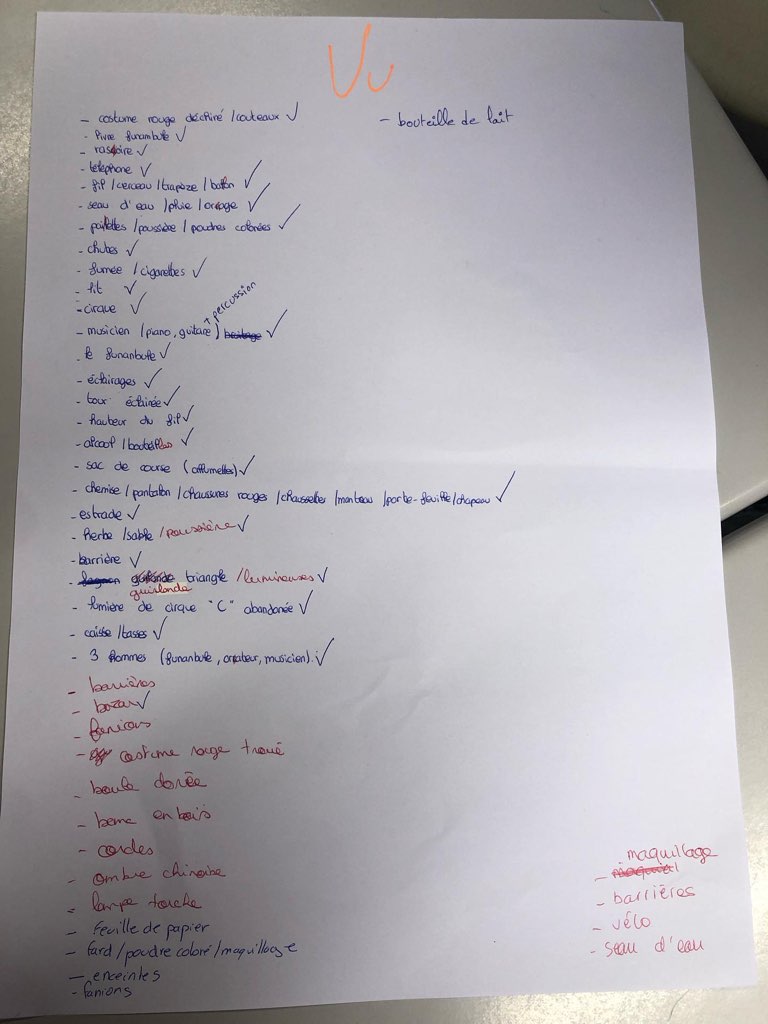 Vu
- costume rouge déchiré / couteaux ✓
- bouteille de lait
- livre funambule ✓
- rasoire ✓
- téléphone ✓
- fil / cerceau / trapèze / ballon ✓
- seau d'eau / pluie / orage ✓
- paillettes / poussière / poudres colorées ✓
- chutes ✓
- fumée / cigarettes ✓
- lit ✓
- cirque ✓
- musicien (piano, guitare + percussion) ✓
- le funambule ✓
- éclairages ✓
- tour éclairée ✓
- hauteur du fil ✓
- alcool / bouteilles ✓
- sac de course (allumettes) ✓
- chemise / pantalon / chaussures rouges / chaussettes / manteau / porte-feuille / chapeau ✓
- estrade ✓
- herbe / sable / poussière ✓
- barrière ✓
- guirlande triangle / lumineuses ✓
- lumière de cirque "C" abandonée ✓
- caisse / tasses ✓
- 3 hommes (funanbule, orateur, musicien). ✓
- barrières
- bazar ✓
- fanions
- costume rouge troué
- boule dorée
- en bois
- cordes
- ombre chinoise
- lampe torche
- feuille de papier
- fard / poudre coloré / maquillage
- enceintes
- fanions
- maquillage
- barrières
- vélo
- seau d'eau